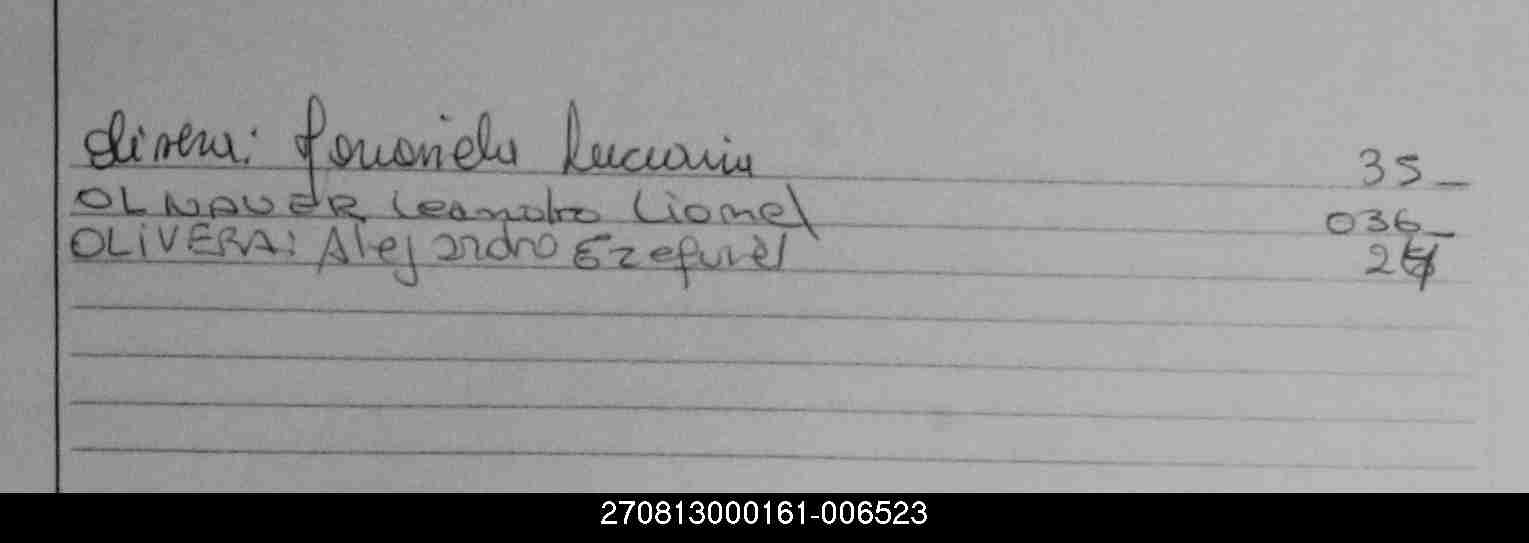 Olivera: Luciana 35_
OLNAUER Leandro Lionel 036_
OLIVERA: Alejandro Ezequiel
270813000161-006523